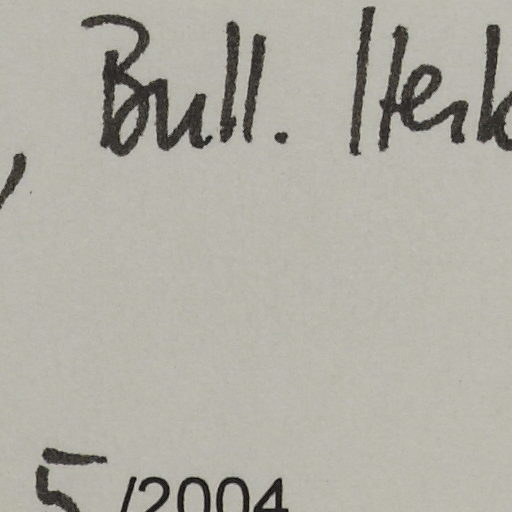 , Bull. Herb
5/2004